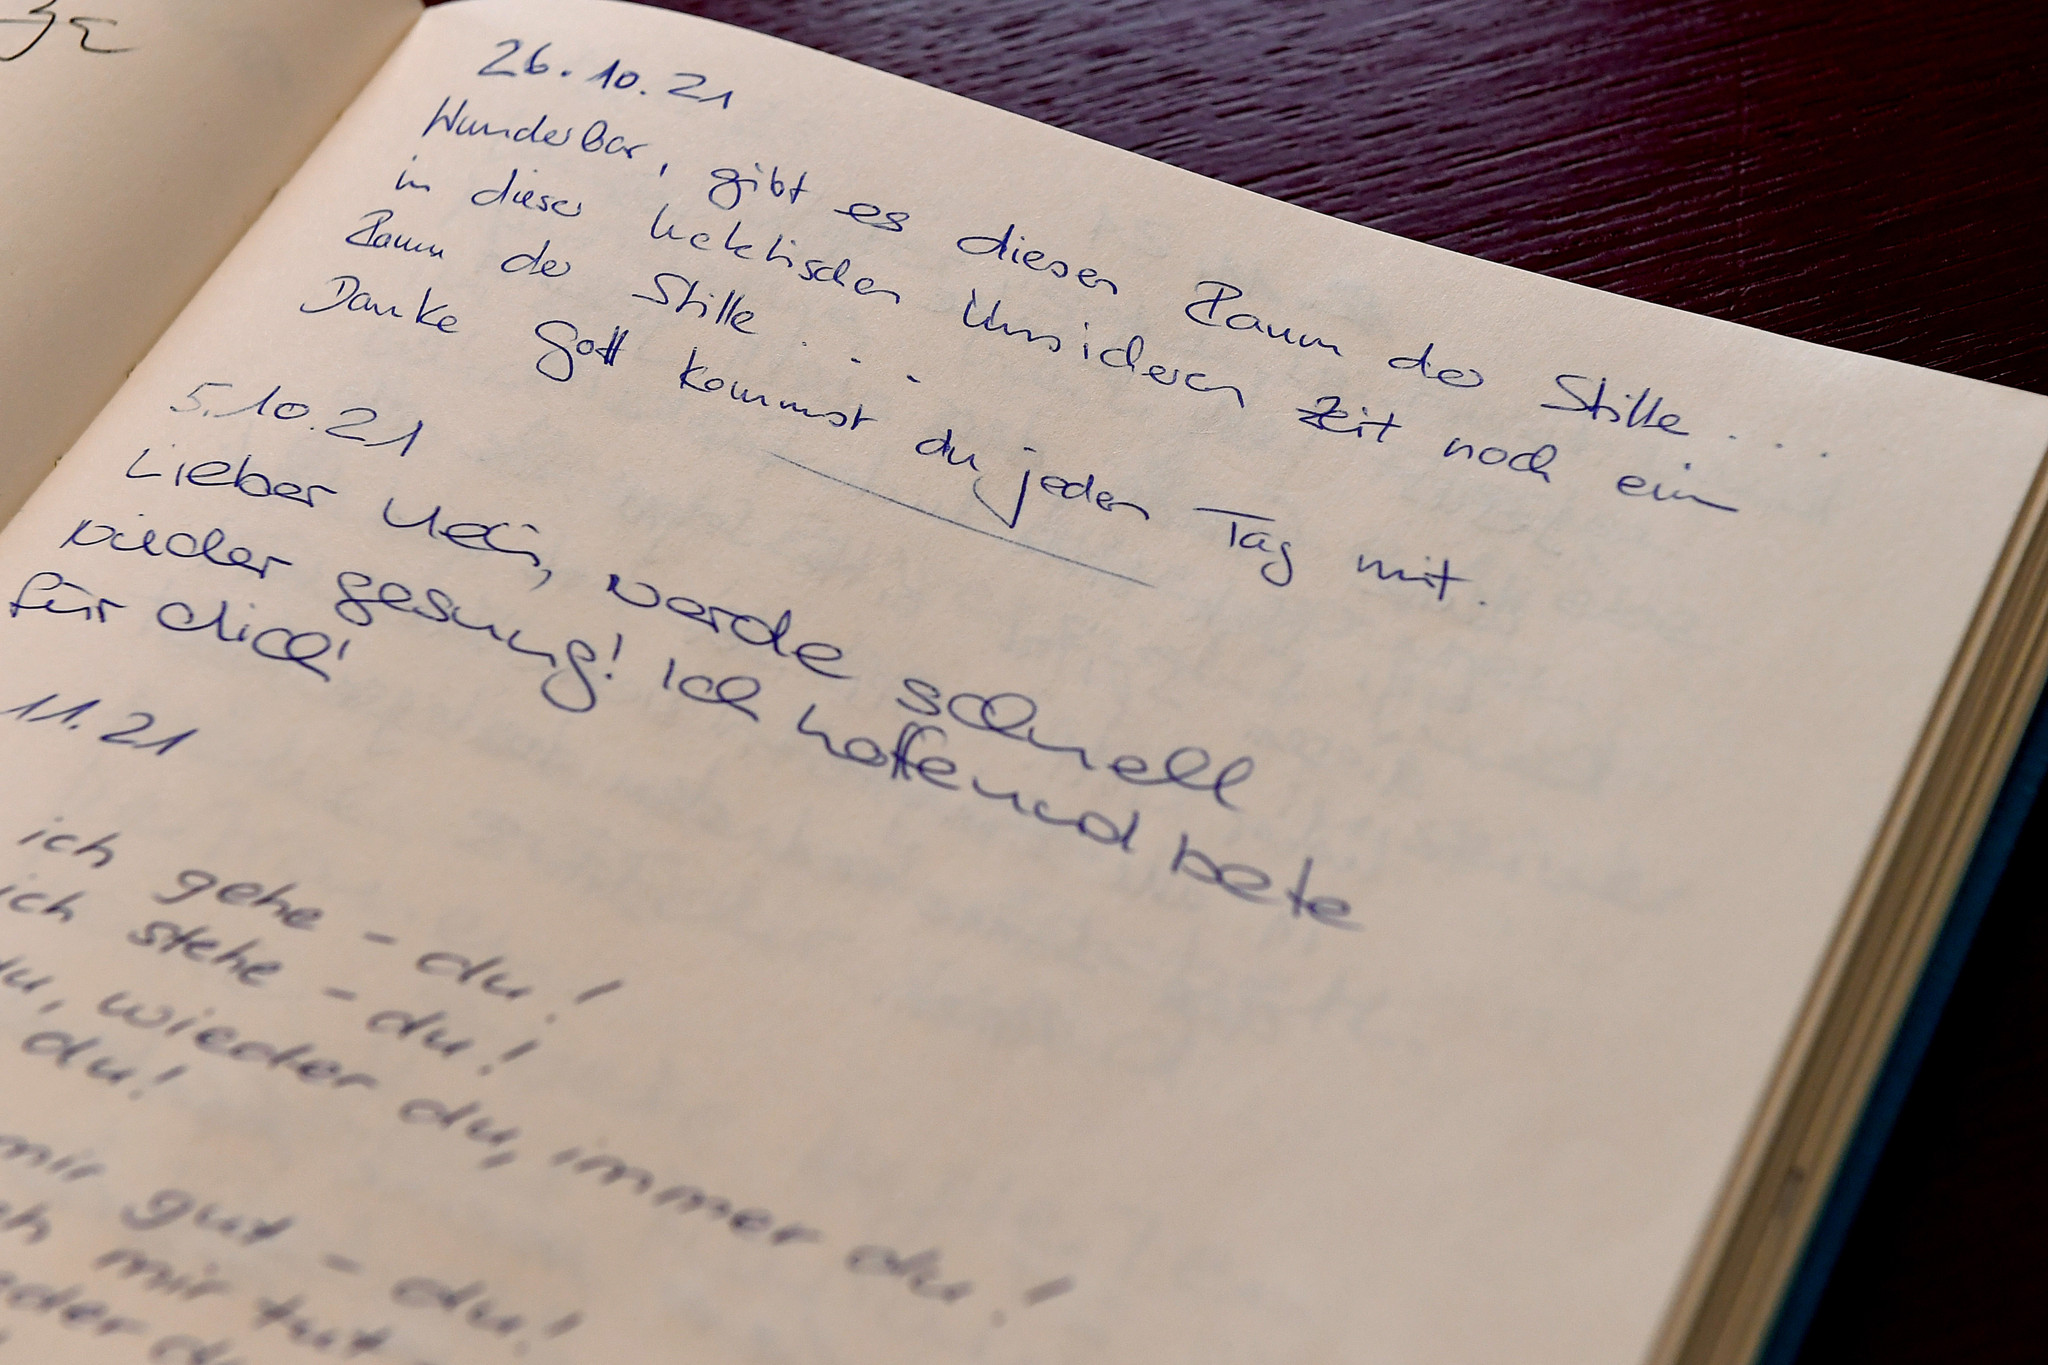 26.10.21
Wunderbar, gibt es diesen Raum der Stille....
in dieser hektischen Unsicheren Zeit noch ein
Raum der Stille...
Danke Gott kommst du jeden Tag mit.
5.10.21
Lieber Ueli, werde schnell
wieder gesung! Ich hoffe und bete
für dich!
11.21
ich gehe - du!
ich stehe - du!
du, wieder du, immer du!
du!
mir gut - du!
mir tut -
du